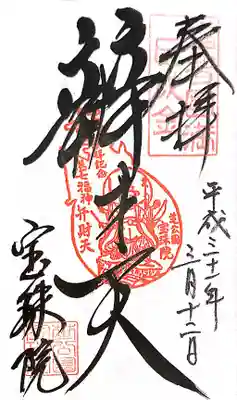 奉拝
平成三十一年
三月十二日
辨才天
七福神弁財天
芝公園
宝珠院
宝珠院